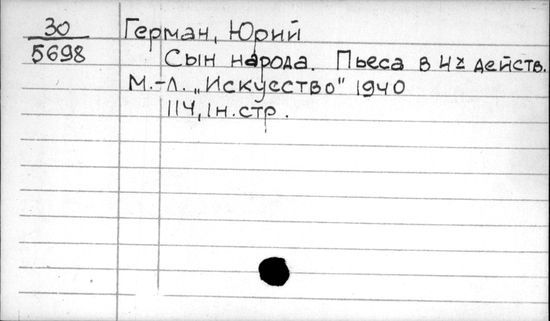 30
5698
Герман, Юрий
Сын народа. Пьеса в 4х действ.
М.-Л. „Искусство" 1940
114, 1н. стр.